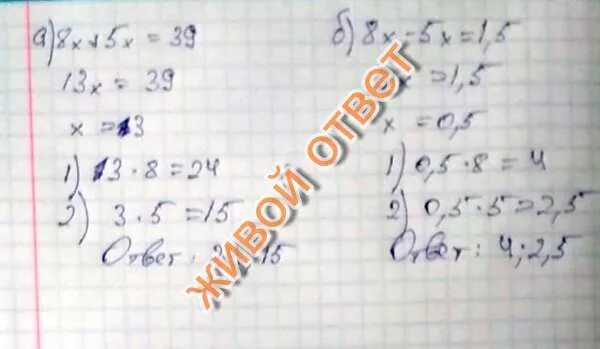 а) 8х+5х = 39
13х = 39
х = 3
1) 3·8 = 24
2) 3·5 = 15
Ответ: 15
б) 8х-5х = 1,5
х = 1,5
х = 0,5
1) 0,5·8 = 4
2) 0,5·5 = 2,5
Ответ: 4; 2,5
ЖИВОЙ ОТВЕТ